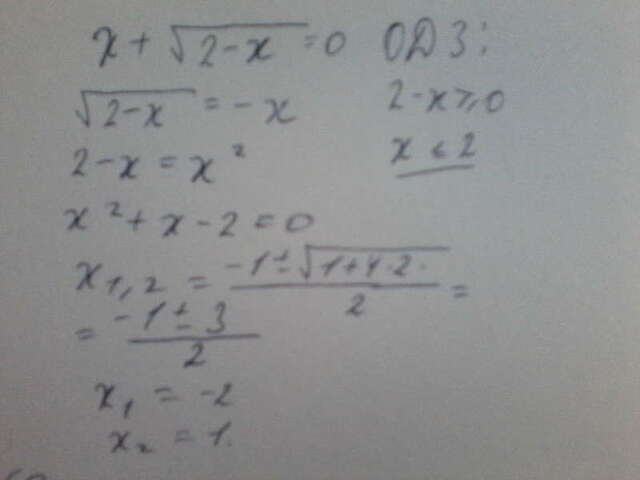 x + √(2-x) = 0 ОДЗ:
√(2-x) = -x 2-x ≥ 0
2-x = x² x ≤ 2
x² + x - 2 = 0
x₁,₂ = (-1 ± √(1+4·2·))/2 =
= (-1 ± 3)/2
x₁ = -2
x₂ = 1.